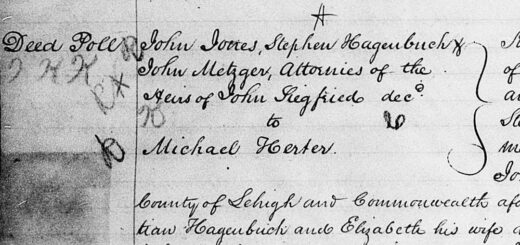 Deed Poll John Jones, Stephen Hagenbuch &
John Metzger, Attornies of the
Heirs of John Siegfried decd.
to
Michael Herter.
County of Lehigh and Commonwealth afo
tian Hagenbuch and Elizabeth his wife